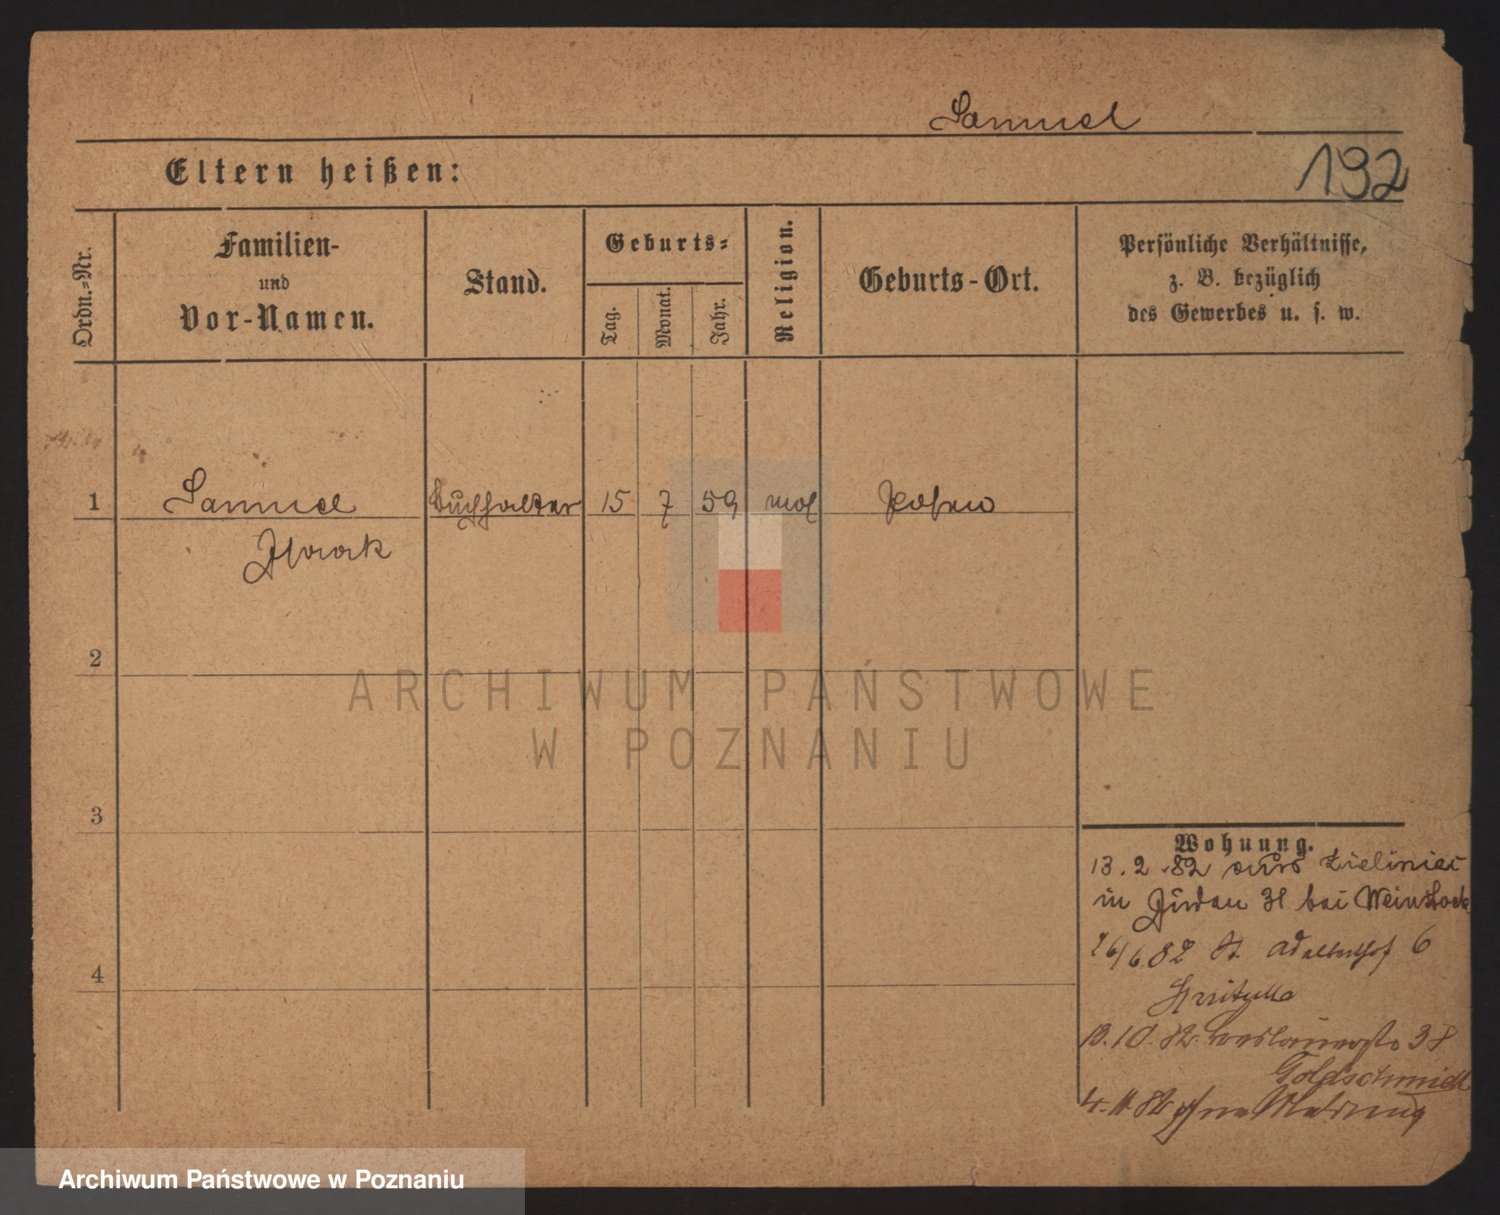 Samuel
Eltern heißen:
192
Ordn.-Nr.
Familien-
und
Vor-Namen.
Stand.
Geburts-
Tag.
Monat.
Jahr.
Religion.
Geburts-Ort.
Persönliche Verhältnisse,
z. B. bezüglich
des Gewerbes u. s. w.
1 Samuel Buchhalter 15 7 59 mos Posen
Isaak
2
ARCHIWUM PAŃSTWOWE
W POZNANIU
3
4
Wohnung.
13.2.82 aus Zieliniec
in Juden 31 bei Weinstock
26/6.82 St. Adalberthof 6
13.10.82 Breslauerstr 38
Goldschmidt
4.11.82 ohne Meldung
Archiwum Państwowe w Poznaniu